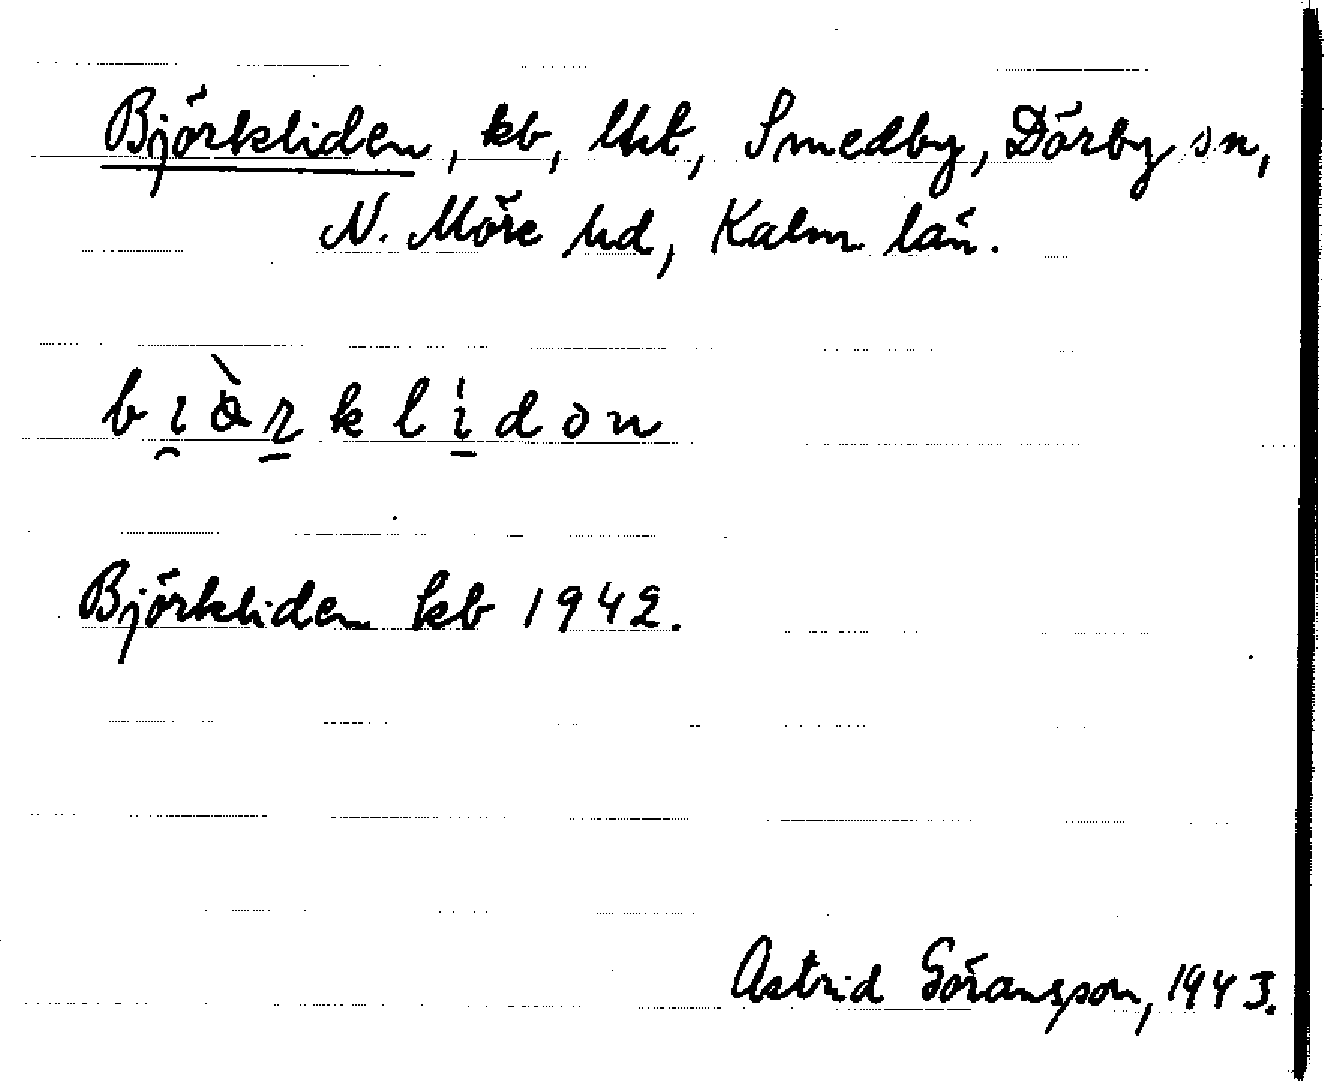 Björkliden, kb, lht, Smedby, Dörby sn,
N. Möre hd, Kalm län.
Björkliden kb 1942.
Astrid Göransson, 1943.